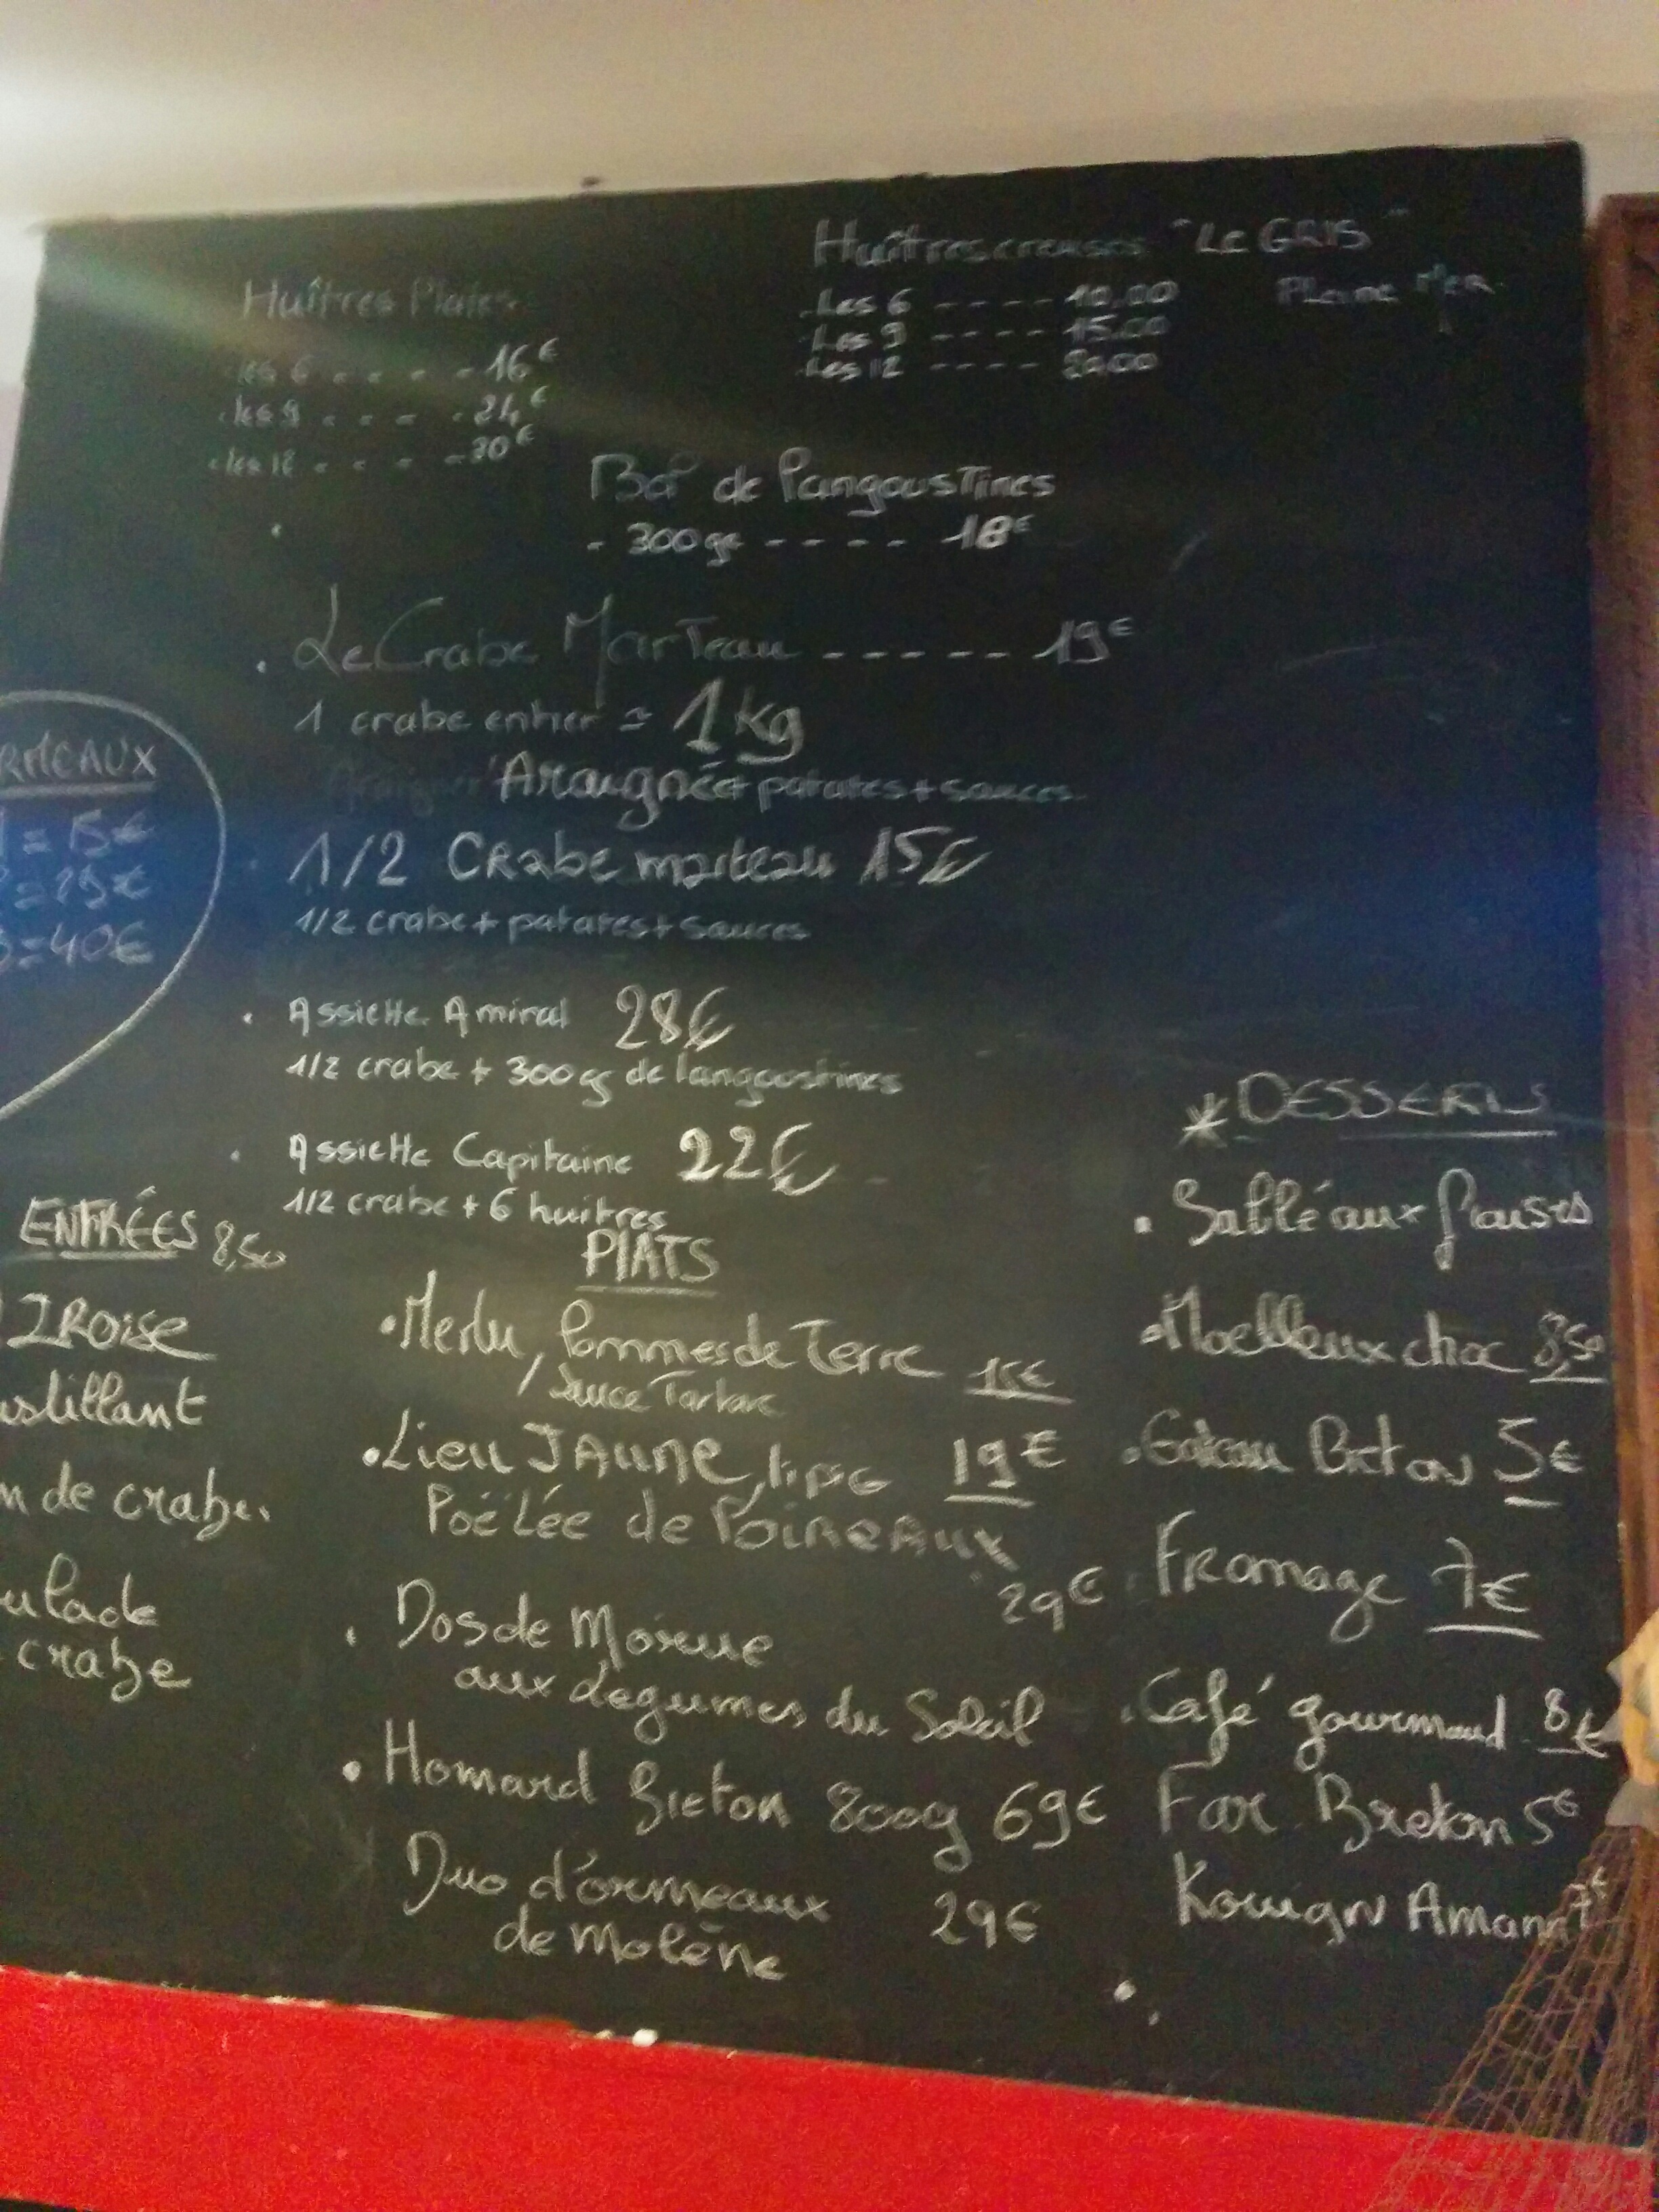 Huîtres creuses "LE GRIS"
Pleine Mer
Les 6 ---- 10,00
Les 9 ---- 15,00
Les 12 ----
Huîtres Plates
Les 6 - - - - 16€
Les 9 - - - - 24€
Les 12 - - - - 30€
Bol de langoustines
- 300gr ---- 18€
. Le Crabe Marteau ----- 19€
1 crabe entier = 1 Kg
Araignée + patates + sauces
1/2 Crabe marteau 15€
1/2 crabe + patates + sauces
RMEAUX
1 = 15€
= 29€
3 = 40€
. Assiette Amiral 28€
1/2 crabe + 300g de langoustines
. Assiette Capitaine 22€
1/2 crabe + 6 huîtres
ENTRÉES 8,50
IROISE
ustillant
n de crabe
ulade
crabe
PLATS
. Merlu, Pommes de Terre
/ Sauce Tartare
. Lieu JAUNE 19€
Poëlée de POIREAUX
. Dos de Morue 29€
aux Légumes du Soleil
. Homard Breton 800g 69€
Duo d'ormeaux
de Molène 29€
* DESSERTS
. Sablé aux fraises
. Moelleux choc 8,50
. Gateau Breton 5€
. Fromage 7€
. Café gourmand 8€
Far Breton 5€
Kouign Amann 7€